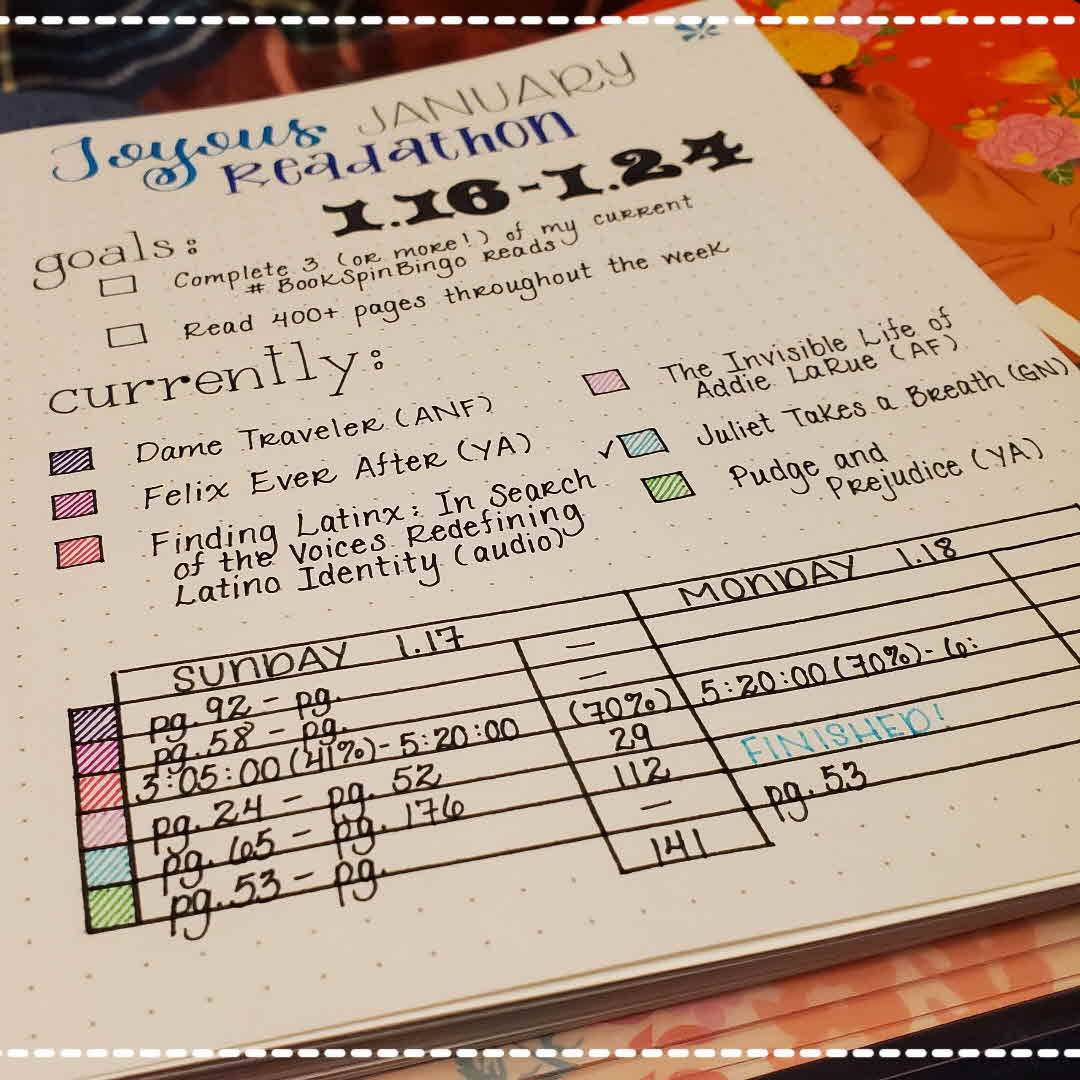 Joyous JANUARY
Readathon
1.16-1.24
goals:
Complete 3 (or more!) of my current
# BookSpinBingo Reads
Read 400+ pages throughout the week
currently:
Dame Traveler (ANF)
Felix Ever After (YA)
Finding Latinx: In Search
of the Voices Redefining
Latino Identity (audio)
The Invisible Life of
Addie LaRue (AF)
✓ Juliet Takes a Breath (GN)
Pudge and
Prejudice (YA)
SUNDAY 1.17
pg. 92 - pg. —
pg. 58 - pg. —
3:05:00 (41%) - 5:20:00 (70%)
pg. 24 - pg. 52 29
pg. 65 - pg. 176 112
pg. 53 - pg. —
141
MONDAY 1.18
5:20:00 (70%) - 6:
FINISHED!
pg. 53